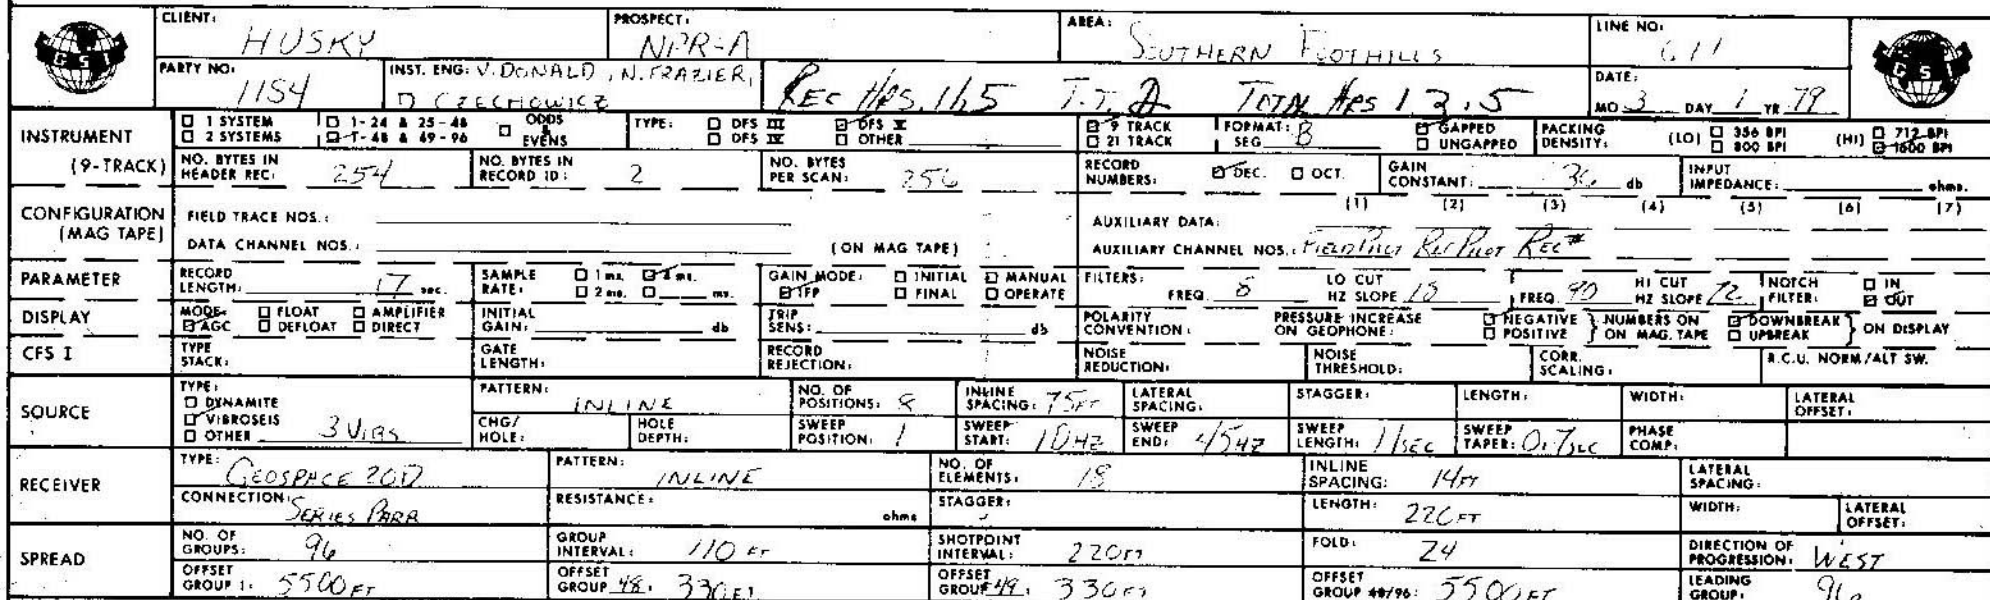 CLIENT: HUSKY PROSPECT: NPR-A AREA: SOUTHERN FOOTHILLS LINE NO: 611
GSI GSI
PARTY NO: 1154 INST. ENG: V. DONALD, N. FRAZIER, D CZECHOWICZ REC HRS. 11.5 T.T. 2 TOTAL HRS 13.5 DATE: MO 3 DAY 1 YR 79
INSTRUMENT 1 SYSTEM 1-24 & 25-48 ODDS & EVENS TYPE: DFS III DFS V 9 TRACK FORMAT: SEG B GAPPED PACKING DENSITY: (LO) 356 BPI (HI) 712 BPI
2 SYSTEMS 1-48 & 49-96 DFS IV OTHER 21 TRACK UNGAPPED 800 BPI 1600 BPI
(9-TRACK) NO. BYTES IN HEADER REC: 254 NO. BYTES IN RECORD ID: 2 NO. BYTES PER SCAN: 256 RECORD NUMBERS: DEC. OCT. GAIN CONSTANT: 36 db INPUT IMPEDANCE: ohms.
CONFIGURATION (MAG TAPE) FIELD TRACE NOS.: AUXILIARY DATA: (1) (2) (3) (4) (5) (6) (7)
DATA CHANNEL NOS.: (ON MAG TAPE) AUXILIARY CHANNEL NOS.: FIELD PILOT REC PILOT REC#
PARAMETER RECORD LENGTH: 17 sec. SAMPLE RATE: 1 ms. 4 ms. 2 ms. ms. GAIN MODE: INITIAL MANUAL IFP FINAL OPERATE FILTERS: FREQ 8 LO CUT HZ SLOPE 18 FREQ 90 HI CUT HZ SLOPE 72 NOTCH FILTER: IN OUT
DISPLAY MODE: FLOAT AMPLIFIER AGC DEFLOAT DIRECT INITIAL GAIN: db TRIP SENS: db POLARITY CONVENTION: PRESSURE INCREASE ON GEOPHONE: NEGATIVE POSITIVE NUMBERS ON MAG. TAPE DOWNBREAK UPBREAK ON DISPLAY
CFS I TYPE STACK: GATE LENGTH: RECORD REJECTION: NOISE REDUCTION: NOISE THRESHOLD: CORR. SCALING: R.C.U. NORM/ALT SW.
SOURCE TYPE: DYNAMITE VIBROSEIS OTHER 3 VIBS PATTERN: INLINE NO. OF POSITIONS: 8 INLINE SPACING: 75FT LATERAL SPACING: STAGGER: LENGTH: WIDTH: LATERAL OFFSET:
CHG/HOLE: HOLE DEPTH: SWEEP POSITION: 1 SWEEP START: 10HZ SWEEP END: 45HZ SWEEP LENGTH: 11SEC SWEEP TAPER: 0.7SEC PHASE COMP:
RECEIVER TYPE: GEOSPACE 20D PATTERN: INLINE NO. OF ELEMENTS: 18 INLINE SPACING: 14FT LATERAL SPACING:
CONNECTION: SERIES PARR RESISTANCE: ohms STAGGER: LENGTH: 220FT WIDTH: LATERAL OFFSET:
SPREAD NO. OF GROUPS: 96 GROUP INTERVAL: 110 FT SHOTPOINT INTERVAL: 220FT FOLD: 24 DIRECTION OF PROGRESSION: WEST
OFFSET GROUP 1: 5500FT OFFSET GROUP 48: 330FT OFFSET GROUP 49: 330FT OFFSET GROUP 48/96: 5500FT LEADING GROUP: 96